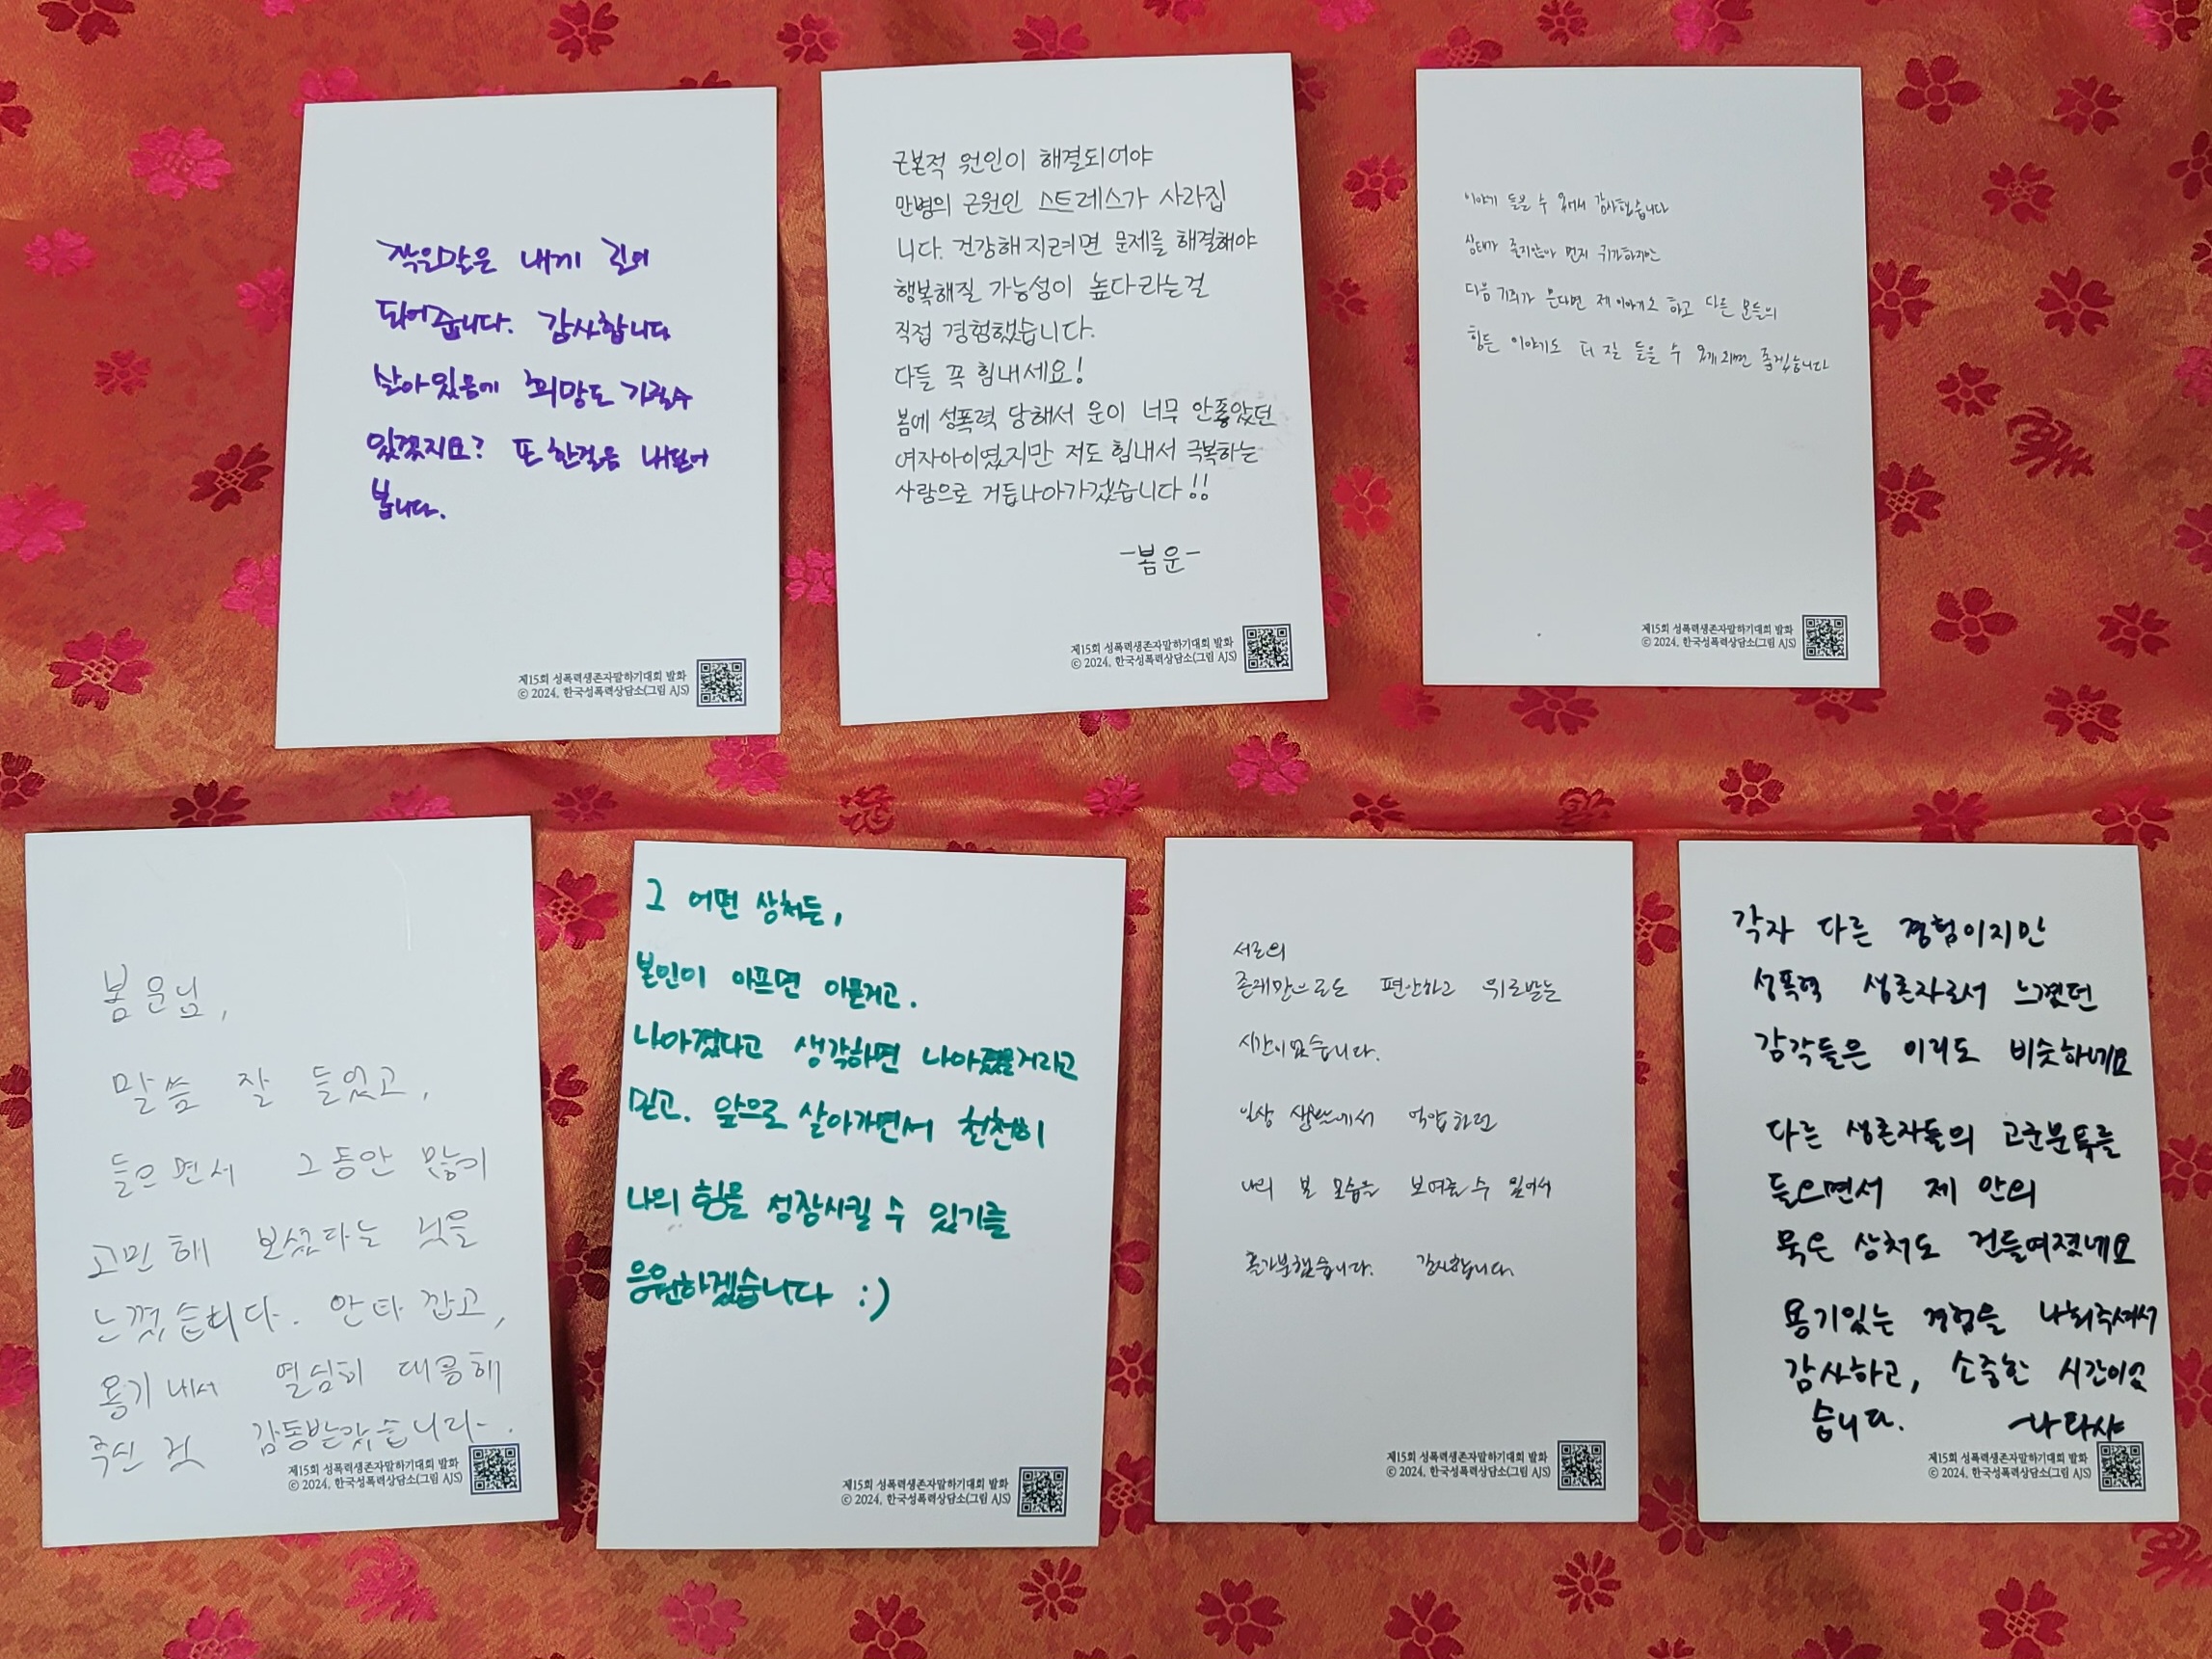 작은말은 내게 길이
되어줍니다. 감사합니다
살아있음에 희망도 가질수
있겠지요? 또 한걸음 내딛어
봅니다.
제15회 성폭력생존자말하기대회 발화
© 2024. 한국성폭력상담소(그림 AJS)
근본적 원인이 해결되어야
만병의 근원인 스트레스가 사라집
니다. 건강해지려면 문제를 해결해야
행복해질 가능성이 높다라는걸
직접 경험했습니다.
다들 꼭 힘내세요!
봄에 성폭력 당해서 운이 너무 안좋았던
여자아이였지만 저도 힘내서 극복하는
사람으로 거듭나아가겠습니다!!
-봄운-
제15회 성폭력생존자말하기대회 발화
© 2024. 한국성폭력상담소(그림 AJS)
이야기 들을 수 있어서 감사했습니다
상태가 좋지않아 먼저 귀가하지만
다음 기회가 온다면 제 이야기도 하고 다른 분들의
힘든 이야기도 더 잘 들을 수 있게 되면 좋겠습니다
제15회 성폭력생존자말하기대회 발화
© 2024. 한국성폭력상담소(그림 AJS)
봄운님,
말씀 잘 들었고,
들으면서 그동안 많이
고민해 보셨다는 것을
느꼈습니다. 안타깝고,
용기내서 열심히 대응해
주신 것 감동받았습니다.
제15회 성폭력생존자말하기대회 발화
© 2024. 한국성폭력상담소(그림 AJS)
그 어떤 상처든,
본인이 아프면 아픈거고.
나아졌다고 생각하면 나아졌을거라고
믿고. 앞으로 살아가면서 천천히
나의 힘을 성장시킬 수 있기를
응원하겠습니다 :)
제15회 성폭력생존자말하기대회 발화
© 2024. 한국성폭력상담소(그림 AJS)
서로의
존재만으로도 편안하고 위로받는
시간이었습니다.
일상 생활에서 억압하던
나의 본 모습을 보여줄 수 있어서
홀가분했습니다. 감사합니다.
제15회 성폭력생존자말하기대회 발화
© 2024. 한국성폭력상담소(그림 AJS)
각자 다른 경험이지만
성폭력 생존자로서 느꼈던
감각들은 이리도 비슷하네요
다른 생존자들의 고군분투를
들으면서 제 안의
묵은 상처도 건들여졌네요
용기있는 경험을 나눠주셔서
감사하고, 소중한 시간이었
습니다. -나타샤
제15회 성폭력생존자말하기대회 발화
© 2024. 한국성폭력상담소(그림 AJS)